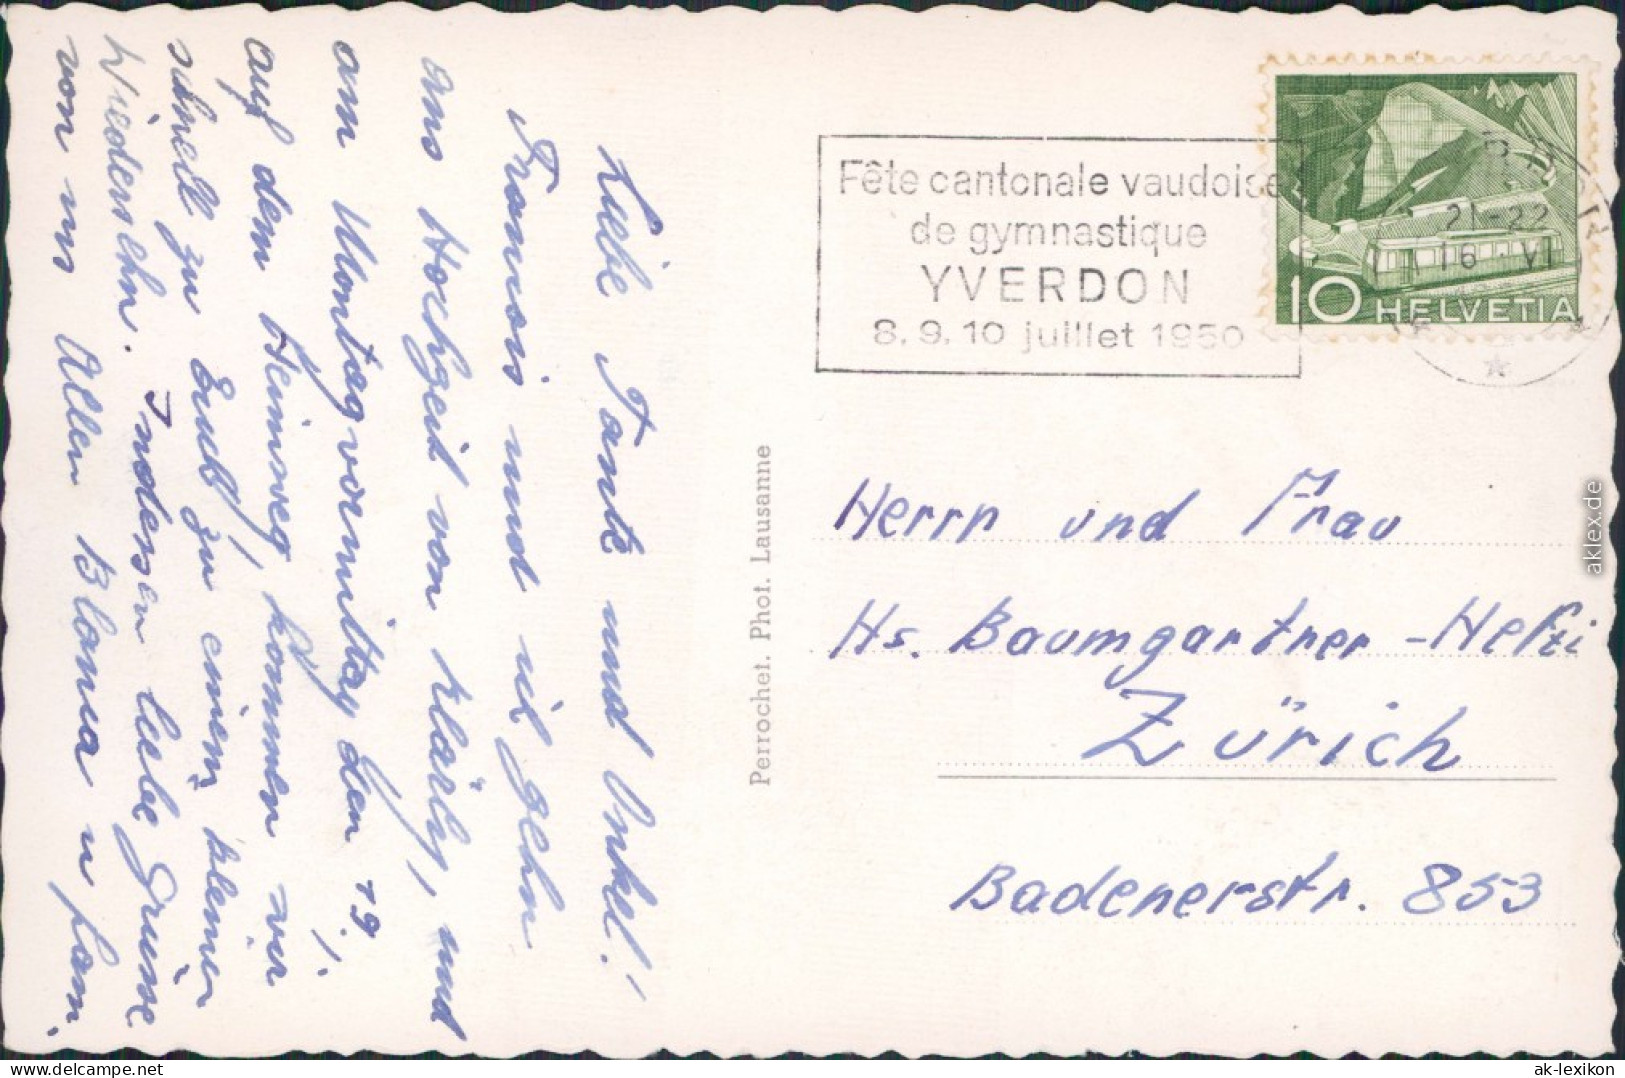 Liebe Tante und Onkel!
Francois und ich gehn
ans Hochzeit von Kläity, und
am Montagvormittag den 19.
auf dem Heimweg, kommen wir
schnell zu Euch zu einem kleinen
Wiedersehn. Indessen liebe Grüsse
von uns Allen Blanca u fam.
Perrochet. Phot. Lausanne
Fête cantonale vaudoise
de gymnastique
YVERDON
8. 9. 10 juillet 1950
21-22
16 VI
10 HELVETIA
Herrn und Frau
Hs. Baumgartner-Hefti
Zürich
Badenerstr. 853
aklex.de
delcampe.net
ak-lexikon